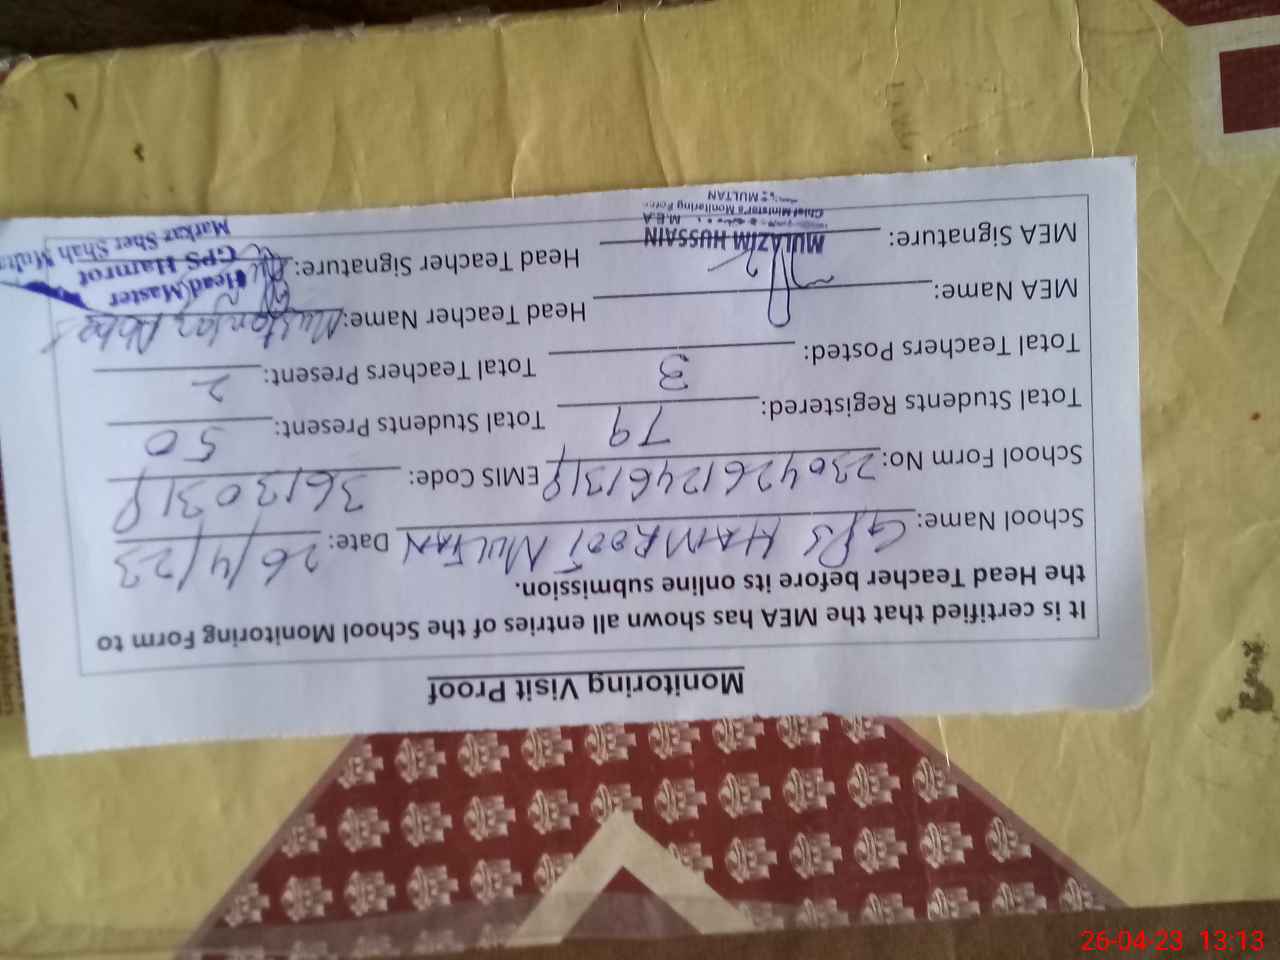 Monitoring Visit Proof
It is certified that the MEA has shown all entries of the School Monitoring Form to
the Head Teacher before its online submission.
School Name: GPS HAMROOT MULTAN Date: 26/4/23
School Form No: EMIS Code:
Total Students Registered: 79 Total Students Present: 50
Total Teachers Posted: 3 Total Teachers Present: 2
MEA Name: Head Teacher Name:
MEA Signature: Head Teacher Signature:
MULAZIM HUSSAIN
M.E.A
Chief Minister's Monitoring Force
MULTAN
Head Master
GPS Hamrot
Markaz Sher Shah
26-04-23 13:13